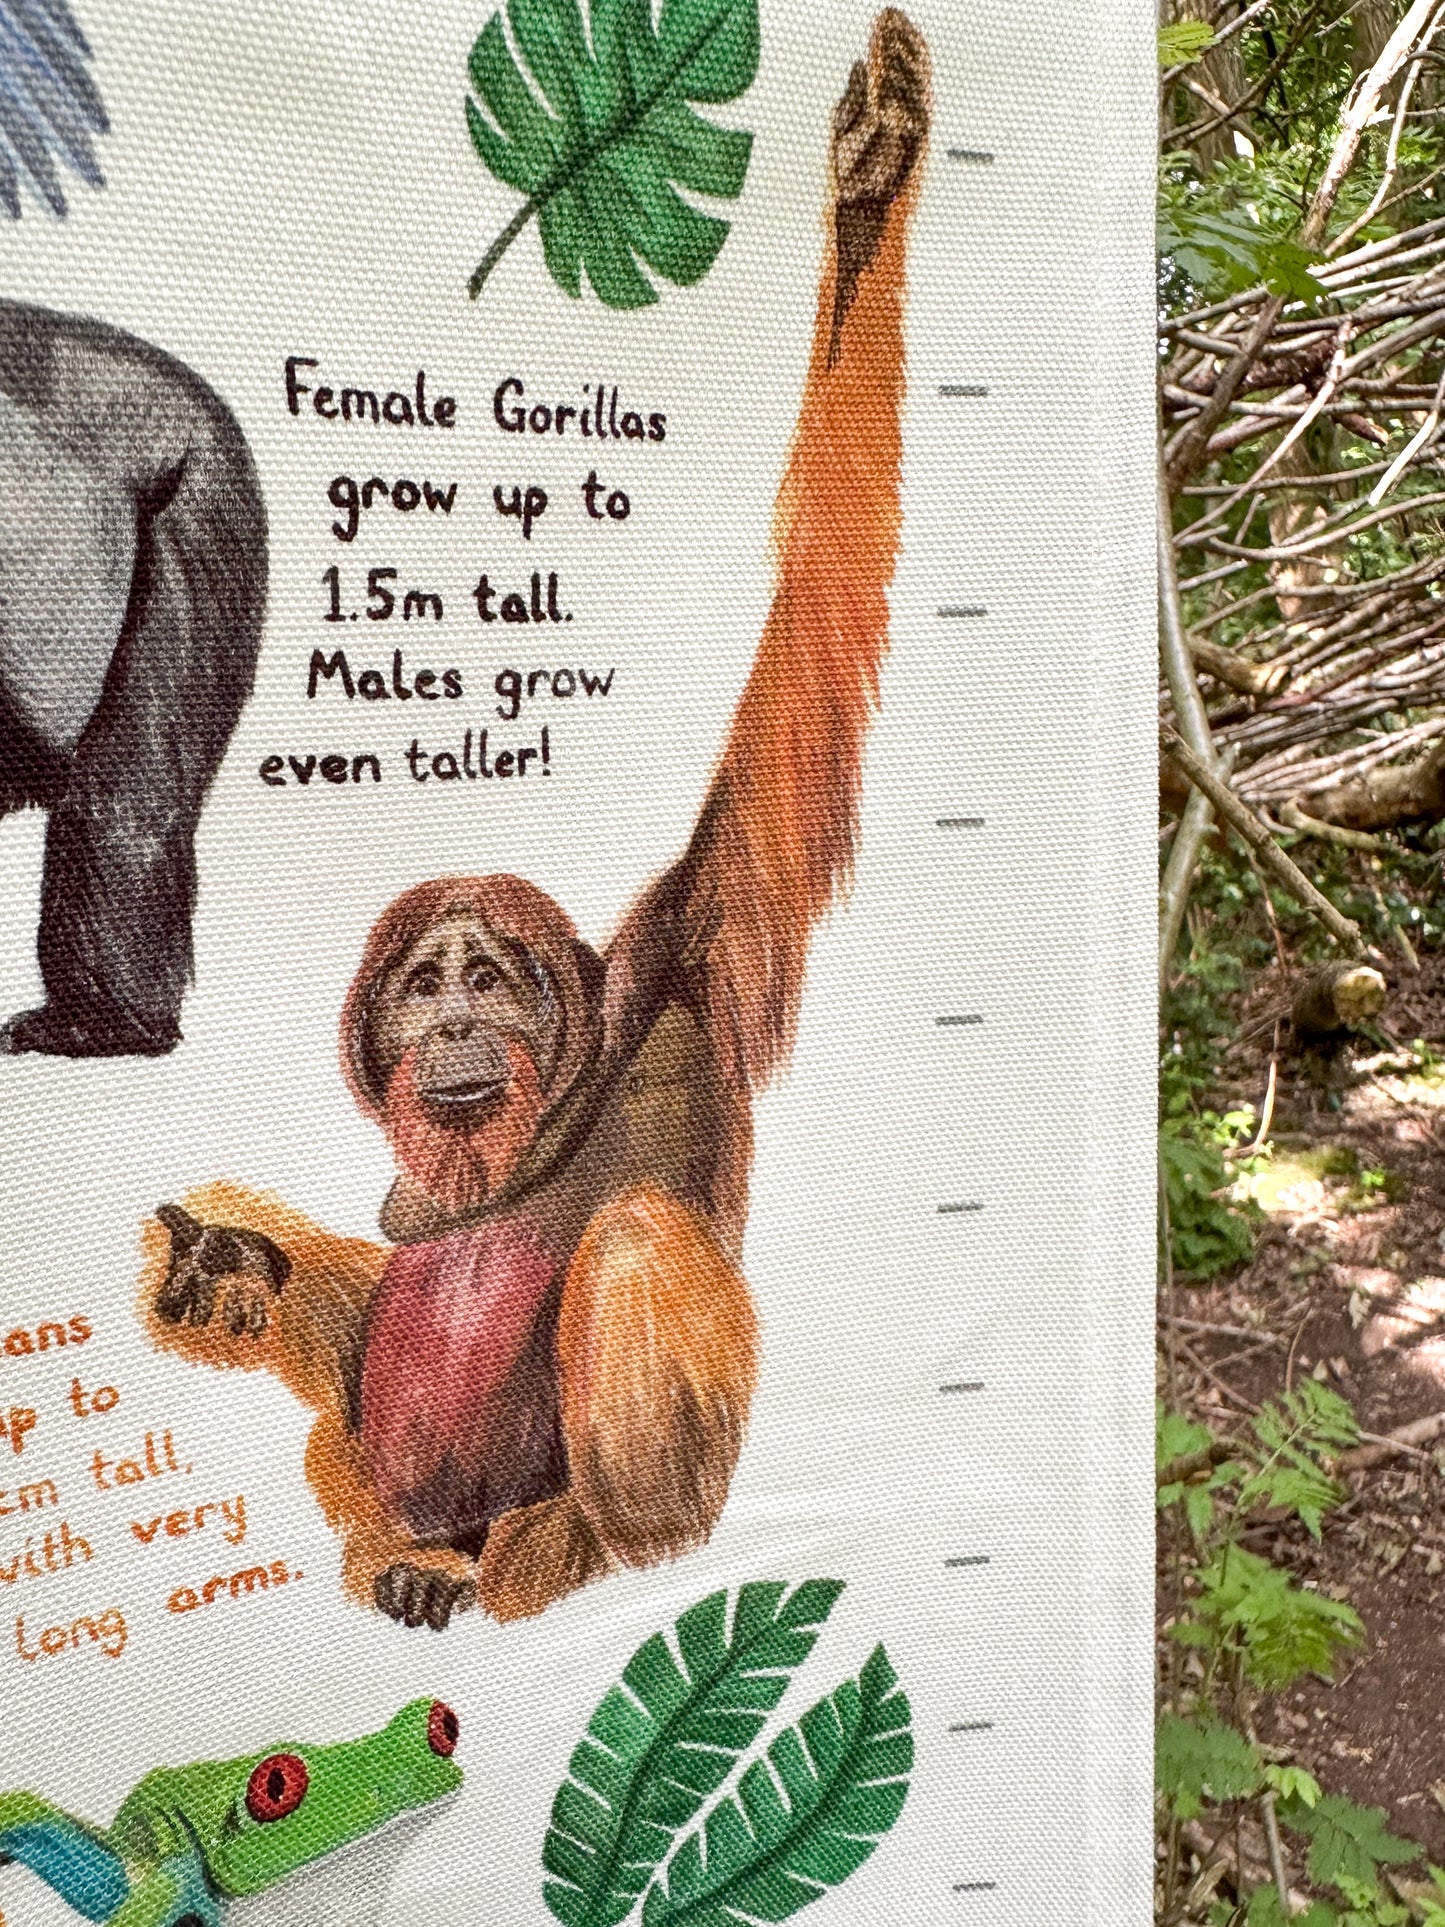 Female Gorillas
grow up to
1.5m tall.
Males grow
even taller!
to
tall,
with very
long arms.